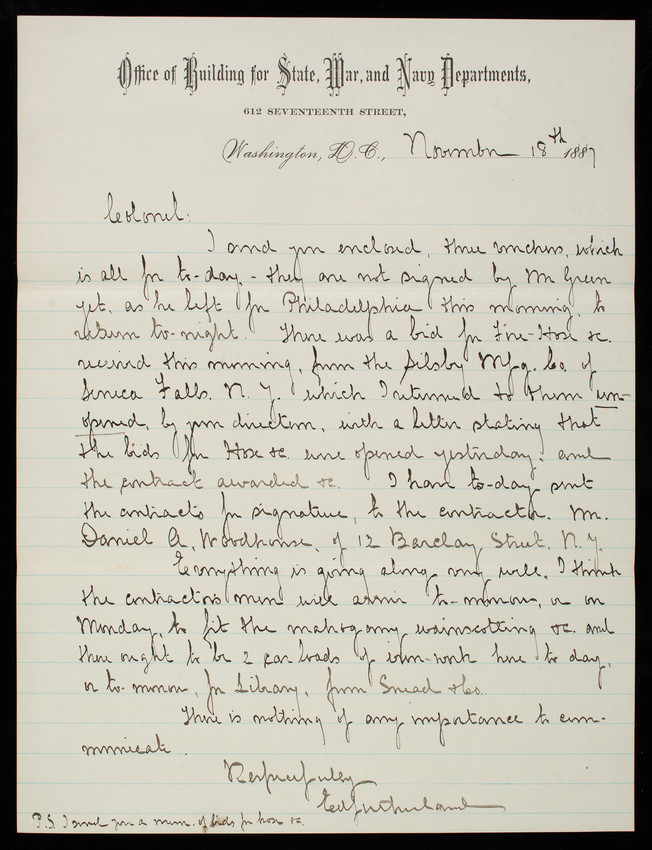 Office of Building for State, War, and Navy Departments,
612 SEVENTEENTH STREET,
Washington, D.C., November 18th 1887
Colonel:
I send you enclosed, three vouchers, which
is all for to-day. - they are not signed by Mr Green
yet, as he left for Philadelphia this morning, to
return to-night. There was a bid for Fire-Hose &c.
received this morning, from the Silsby Mfg. Co. of
Seneca Falls. N.Y. which I returned to them un-
opened, by your direction, with a letter stating that
the bids for Hose &c. were opened yesterday, and
the contract awarded &c. I have to-day sent
the contracts for signature, to the contractor. Mr.
Daniel A. Woodhouse, of 12 Barclay Street. N.Y.
Everything is going along very well, I think
the contractors men will arrive to-morrow, or on
Monday, to fit the mahogany wainscotting &c. and
there ought to be 2 car loads of iron-work here to day,
or to-morrow, for Library, from Snead & Co.
There is nothing of any importance to com-
municate.
Respectfully
Ed Sutherland
P.S. I send you a mem. of bids for hose &c.